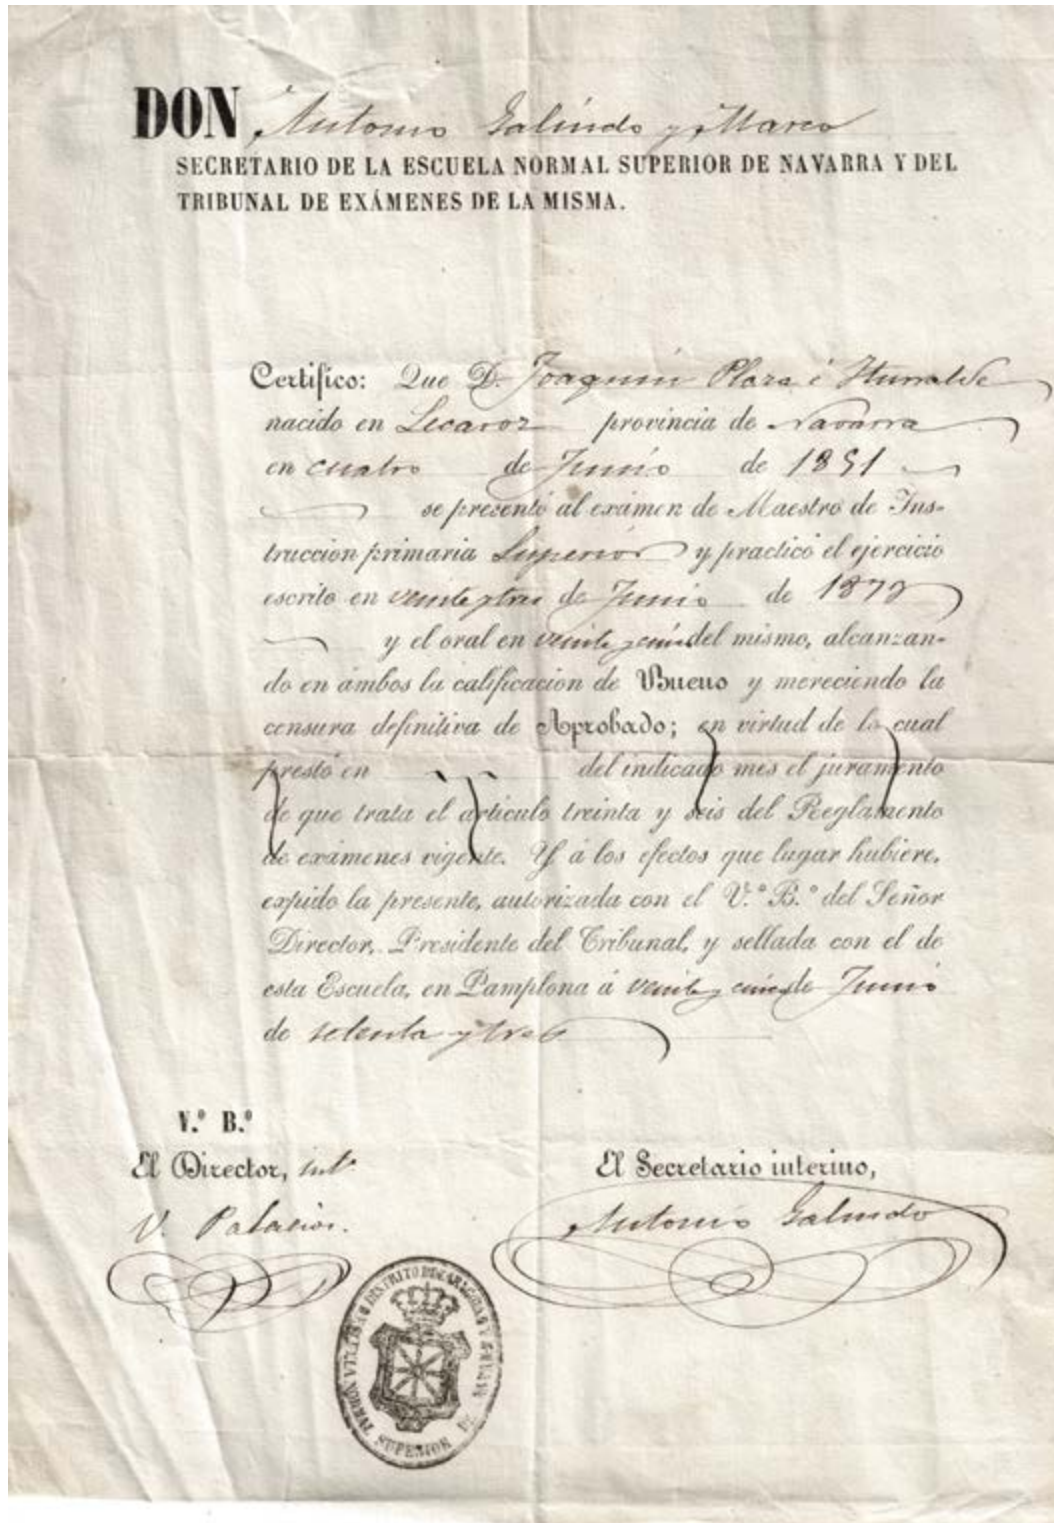 DON Antonio Galindo y Marco
SECRETARIO DE LA ESCUELA NORMAL SUPERIOR DE NAVARRA Y DEL
TRIBUNAL DE EXÁMENES DE LA MISMA.
Certifico: Que D. Joaquin Plaza é Iturralde
nacido en Lecaroz provincia de Navarra
en cuatro de Junio de 1851
se presentó al exámen de Maestro de Ins-
truccion primaria Superior y practicó el ejercicio
escrito en veinte y tres de Junio de 1873
y el oral en veinte y cinco del mismo, alcanzan-
do en ámbos la calificacion de Bueno y mereciendo la
censura definitiva de Aprobado; en virtud de lo cual
prestó en del indicado mes el juramento
de que trata el artículo treinta y seis del Reglamento
de exámenes vigente. Y á los efectos que lugar hubiere,
expido la presente, autorizada con el V.º B.º del Señor
Director, Presidente del Tribunal, y sellada con el de
esta Escuela, en Pamplona á veinte y cinco de Junio
de setenta y tres
V.º B.º
El Director, int.º
El Secretario interino,
V. Palacios.
Antonio Galindo
NORMAL SUPERIOR DE